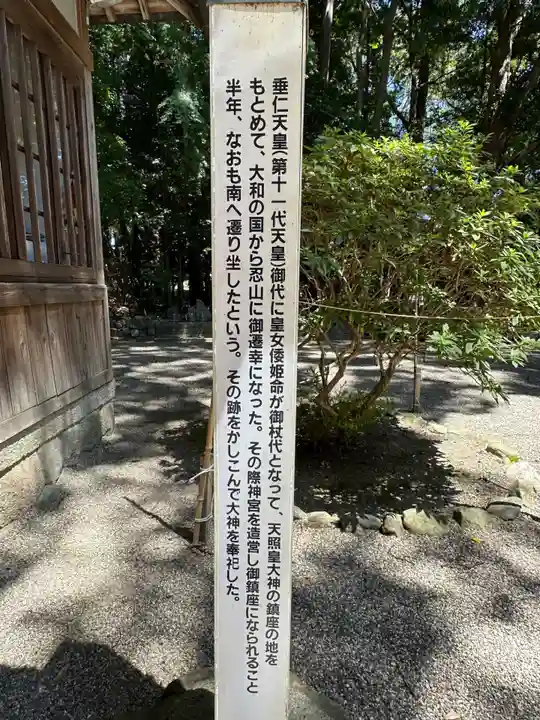 垂仁天皇(第十一代天皇)御代に皇女倭姫命が御杖代となって、天照皇大神の鎮座の地を
もとめて、大和の国から忍山に御遷幸になった。その際神宮を造営し御鎮座になられること
半年、なおも南へ遷り坐したという。その跡をかしこんで大神を奉祀した。